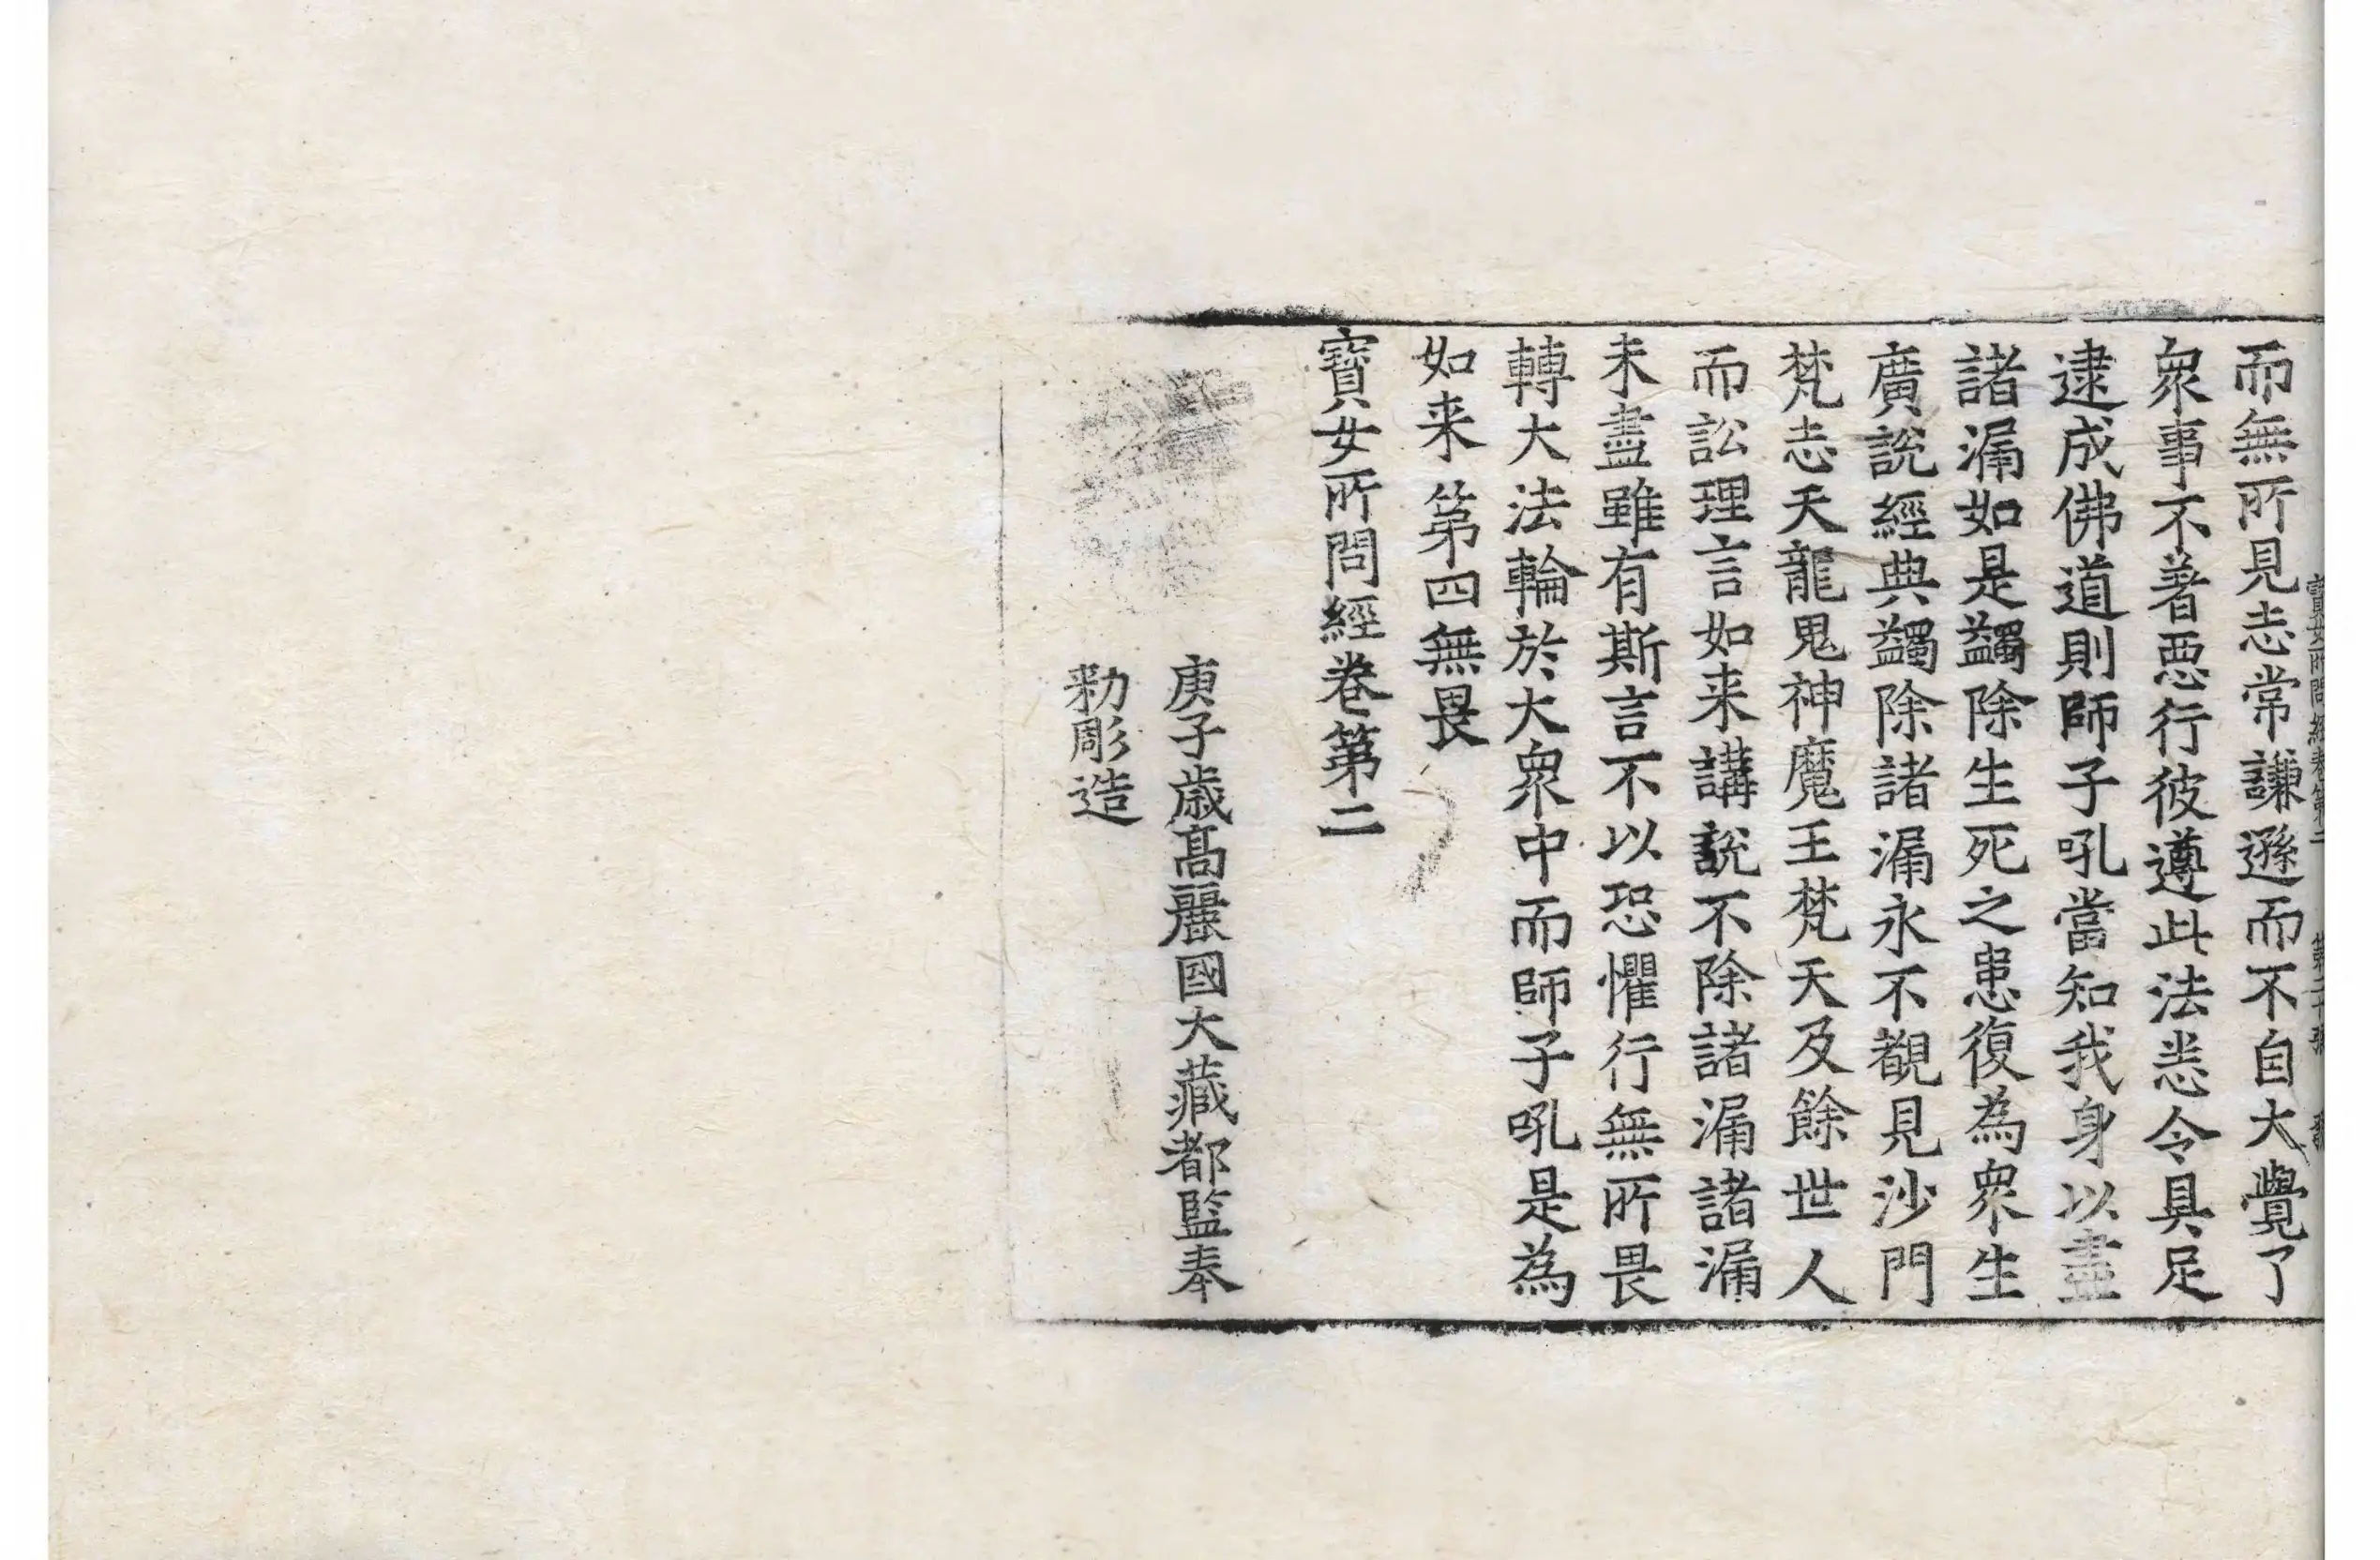 寶女所問經卷第二
而無所見志常謙遜而不自大覺了
衆事不著惡行彼遵此法悉令具足
逮成佛道則師子吼當知我身以盡
諸漏如是蠲除生死之患復為衆生
廣說經典蠲除諸漏永不覩見沙門
梵志天龍鬼神魔王梵天及餘世人
而訟理言如来講說不除諸漏諸漏
未盡雖有斯言不以恐懼行無所畏
轉大法輪於大衆中而師子吼是為
如来第四無畏
寶女所問經卷第二
庚子歳髙麗國大藏都監奉
勑彫造